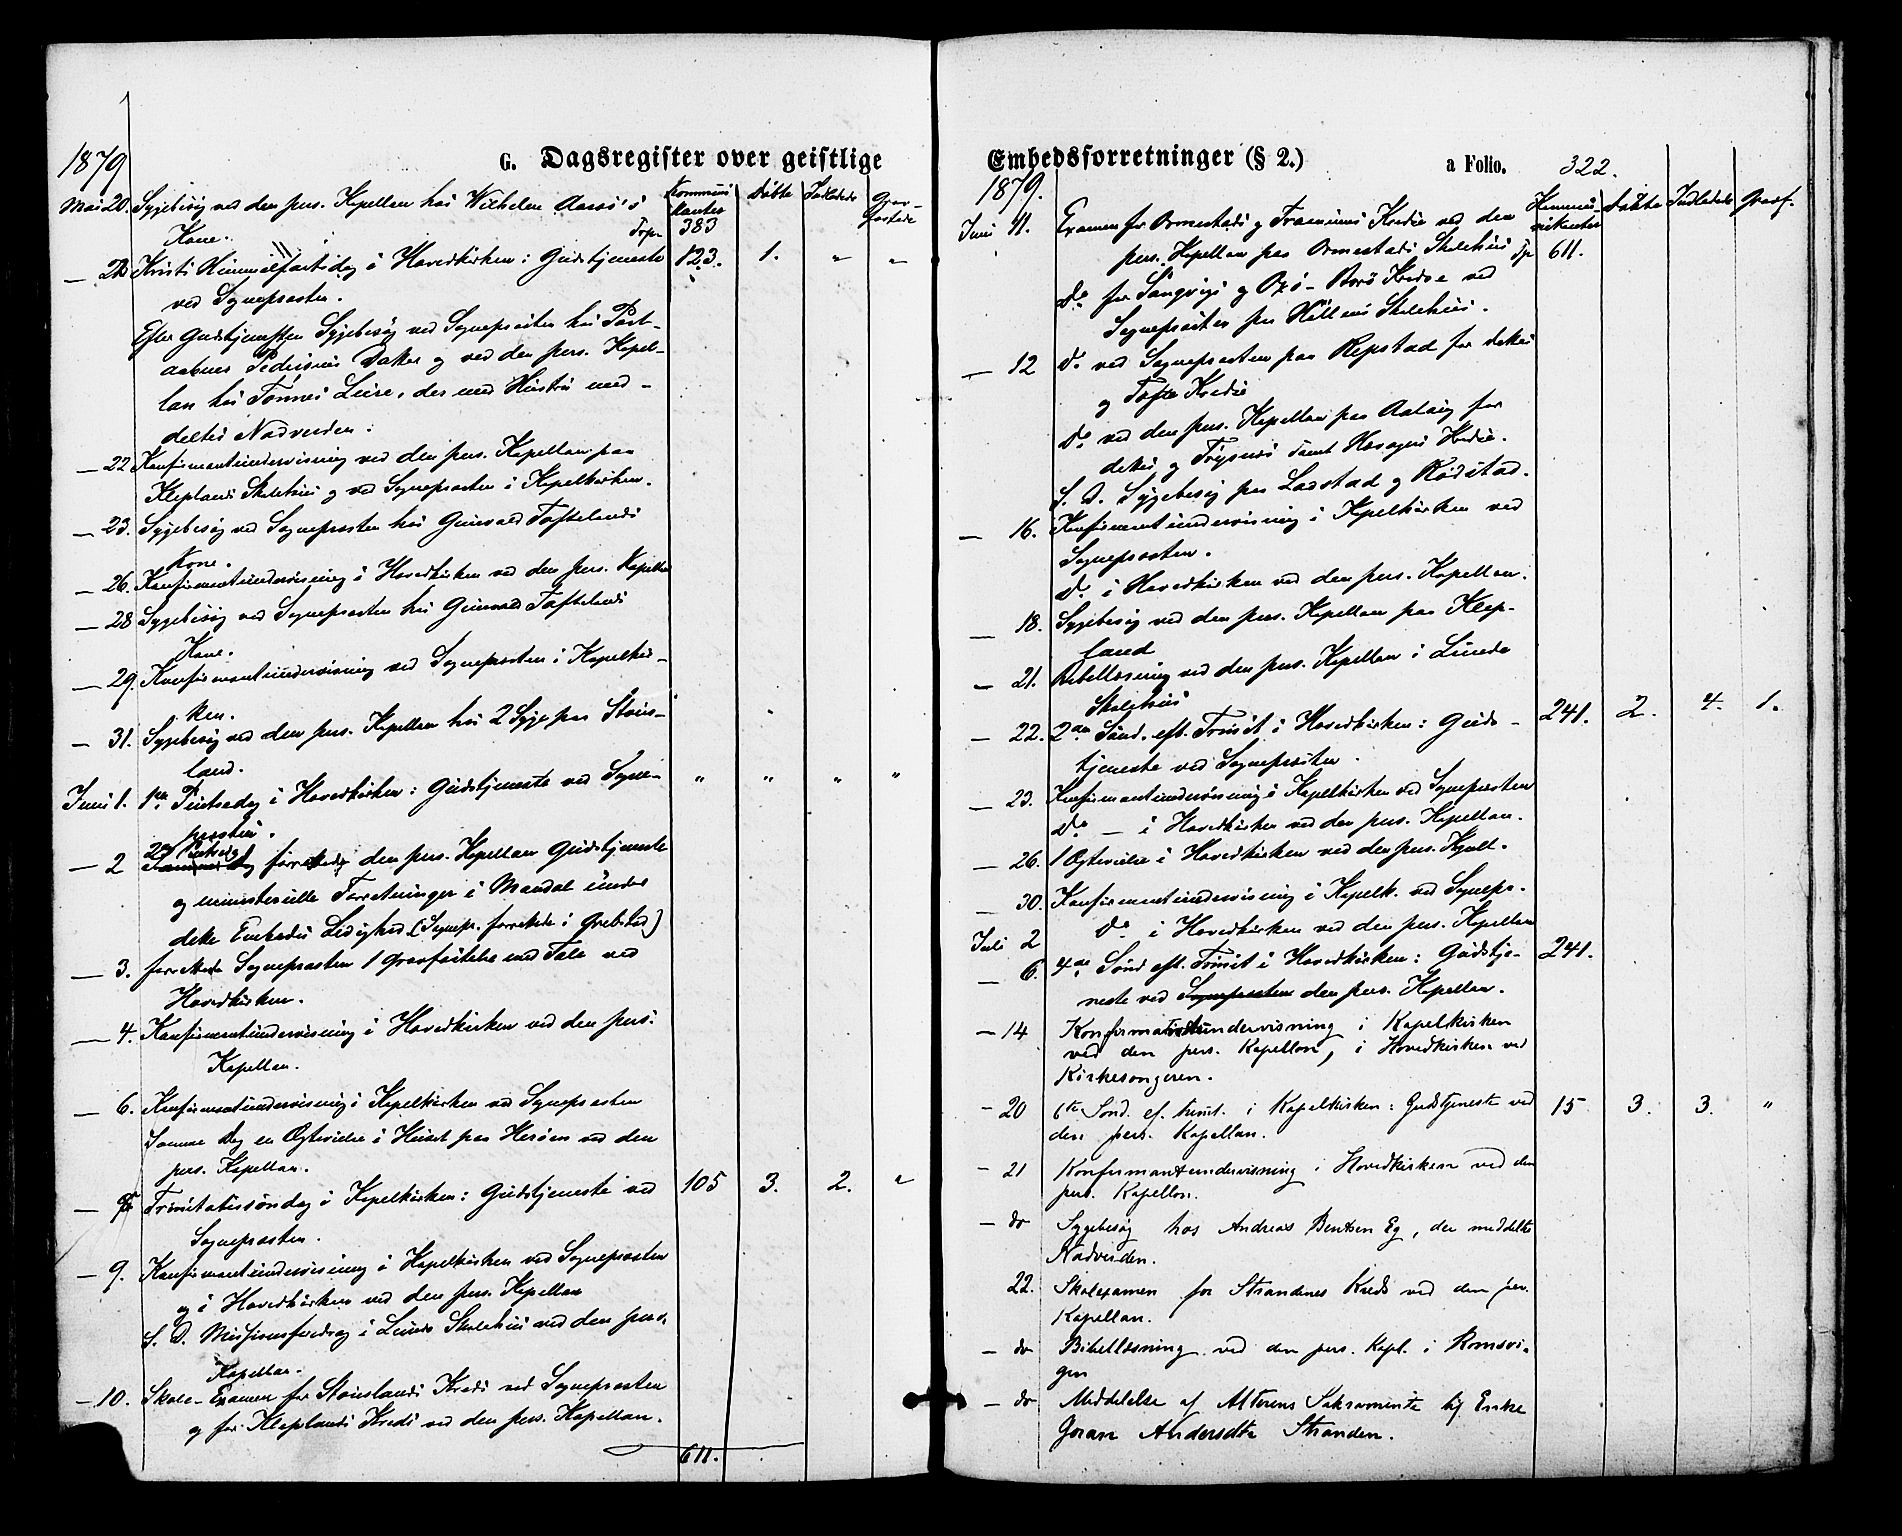 G. Dagsregister over geistlige
1879
Kommuni-
kanter Døbte Indledede Grav-
fæstede
Mai 20. Sygebesøg ved den pers. Kapellan hos Wilhelm Aarø's
Kone. Trpr 383
— 22 Kristi Himmelfartsdag i Hovedkirken: Gudstjeneste 123. 1. " "
ved Sognepræsten.
Efter Gudstjenesten Sygebesøg ved Sognepræsten hos Post-
aabner Pedersens Datter og ved den pers. Kapel-
lan hos Tønnes Luse, der med Hustru med-
deltes Nadveren.
— 22 Konfirmantundervisning ved den pers. Kapellan paa
Kleplands Skolehus og ved Sognepræsten i Kapelkirken.
— 23. Sygebesøg ved Sognepræsten hos Gunvald Toftelands
Kone.
— 26. Konfirmantundervisning i Hovedkirken ved den pers. Kapellan
— 28 Sygebesøg ved Sognepræsten hos Gunvald Toftelands
Kone.
— 29. Konfirmantundervisning ved Sognepræsten i Kapelkir-
ken.
— 31. Sygebesøg ved den pers. Kapellan hos 2 Syge paa Stous-
land.
Juni 1. 1ste Pintsedag i Hovedkirken: Gudstjeneste ved Sogne- " " " "
præsten.
— 2 2den Pintsedag forrettede den pers. Kapellan Gudstjeneste
og ministerielle Forretninger i Mandal under
dette Embedes Ledighed (Sognepr. forrettede i Grebstad)
— 3. forrettede Sognepræsten 1 Gravfæstelse med Tale ved
Hovedkirken.
— 4. Konfirmantundervisning i Hovedkirken ved den pers.
Kapellan.
— 6. Konfirmantundervisning i Kapelkirken ved Sognepræsten
Samme Dag en Ægtevielse i Huset paa Herøen ved den
pers. Kapellan.
— 8 Trinitatissøndag i Kapelkirken: Gudstjeneste ved 105 3. 2. "
Sognepræsten.
— 9. Konfirmantundervisning i Kapelkirken ved Sognepræsten
og i Hovedkirken ved den pers. Kapellan
S. D. Missionsforedrag i Lunde Skolehus ved den pers.
Kapellan.
— 10. Skole-Examen for Stouslands Kreds ved Sognepræsten
og for Kleplands Kreds ved den pers. Kapellan.
611.
Embedsforretninger (§ 2.) a Folio. 322.
1879.
Kommu-
nikanter Døbte Indledede Gravf.
Juni 11. Examen for Ormestads og Tranes Kreds ved den
pers. Kapellan paa Ormestads Skolehus Tp 611.
Do for Langvigs og Oxø-Borø Kredse ved
Sognepræsten paa Hellens Skolehus.
— 12 Do ved Sognepræsten paa Repstad for dettes
og Tofte Kreds
Do ved den pers. Kapellan paa Aalvig for
dettes og Trysnes samt Høvaags Kreds.
S. D. Sygebesøg paa Laastad og Rødstad.
— 16. Konfirmantundervisning i Kapelkirken ved
Sognepræsten.
Do i Hovedkirken ved den pers. Kapellan.
— 18. Sygebesøg ved den pers. Kapellan paa Klep-
land
— 21. Bibellæsning ved den pers. Kapellan i Lunde
Skolehus
— 22. 2den Sønd. eft. Trinit. i Hovedkirken: Guds- 241. 2. 4. 1.
tjeneste ved Sognepræsten.
— 23. Konfirmantundervisning i Kapelkirken ved Sognepræsten
Do — i Hovedkirken ved den pers. Kapellan.
— 26. 1 Ægtevielse i Hovedkirken ved den pers. Kapell.
— 30. Konfirmantundervisning i Kapelk. ved Sognepr.
Juli 2 Do i Hovedkirken ved den pers. Kapellan
— 6. 4de Sønd eft. Trinit i Hovedkirken: Gudstje- 241.
neste ved Sognepræsten den pers. Kapellan.
— 14 Konfirmantundervisning i Kapelkirken
ved den pers. Kapellan, i Hovedkirken ved
Kirkesangeren.
— 20 6te Sønd. ef. trinit. i Kapelkirken: Gudstjeneste ved 15 3. 3. "
den pers. Kapellan.
— 21 Konfirmantundervisning i Hovedkirken ved den
pers. Kapellan.
— do Sygebesøg hos Andreas Bentsen Eg, der meddeltes
Nadverden.
22. Skolexamen for Strandenes Kreds ved den per.
Kapellan.
— do Bibellæsning ved den pers. Kapl. i Romsvi-
gen
— do Meddelelse af Alterens Sakramente til Enke
Joran Andersdtr Stranden.